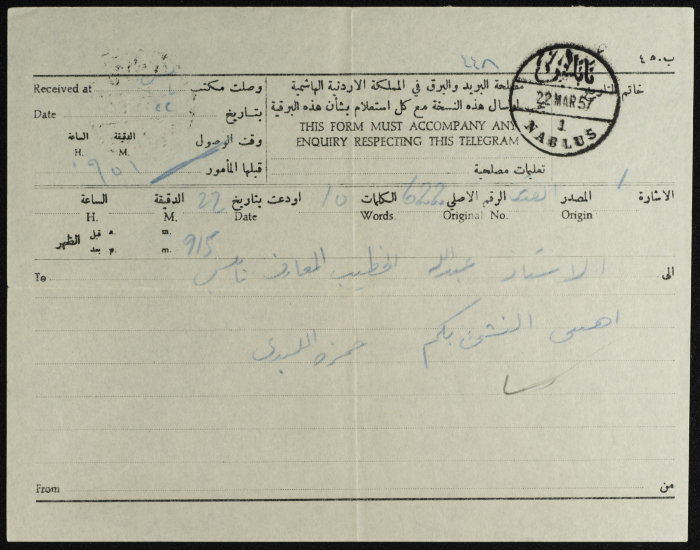 ب. ٤٥
٤٤٨
Received at وصلت مكتب
مصلحة البريد والبرق في المملكة الاردنية الهاشمية
خاتم التاريخ
نابلس
22 MAR 57
1
NABLUS
Date ٢٢ بتاريخ
ارسال هذه النسخة مع كل استعلام بشأن هذه البرقية
الساعة الدقيقة وقت الوصول
THIS FORM MUST ACCOMPANY ANY
H. M.
ENQUIRY RESPECTING THIS TELEGRAM
قبلها المأمور
تعليمات مصلحية
الاشارة / المصدر القدس الرقم الاصلي 622 الكلمات 10 اودعت بتاريخ 22 الدقيقة الساعة
Origin Original No. Words. Date M. H.
915 a. m. قبل الظهر
p. m. بعد
To الى
الاستاذ عبدالله الخطيب المعارف نابلس
اهنئ النشئ بكم حمزه اللبدي
From من